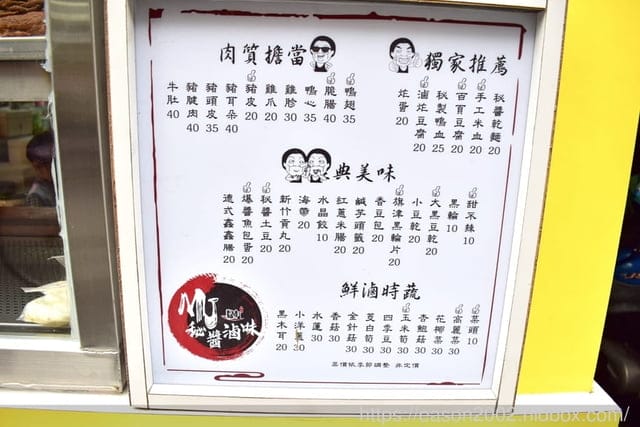 肉質擔當
獨家推薦
鴨翅 35
脆腸 40
鴨心 35
雞胗 30
雞爪 20
豬皮 20
豬耳朵 40
豬頭皮 35
豬腱肉 40
牛肚 40
秘醬乾麵 20
手工米血 20
百頁豆腐 20
秘製鴨血 25
滷炸豆腐 20
炸蛋 20
典美味
甜不辣 10
黑輪 10
大黑豆乾 20
小豆乾 20
旗津黑輪片 20
香豆包 20
鹹芋頭籤 20
紅蔥米腸 20
水晶餃 10
海帶 20
新竹貢丸 20
秘醬土豆 20
爆醬魚包蛋 20
德式鑫鑫腸 20
鮮滷時蔬
菜頭 10
高麗菜 30
花椰菜 30
杏鮑菇 30
玉米筍 30
四季豆 30
茭白筍 30
金針菇 30
香菇 30
水蓮 30
小洋蔥 30
黑木耳 20
菜價依季節調整 非定價
MJ
秘醬滷味
https://eason2002.nidbox.com/